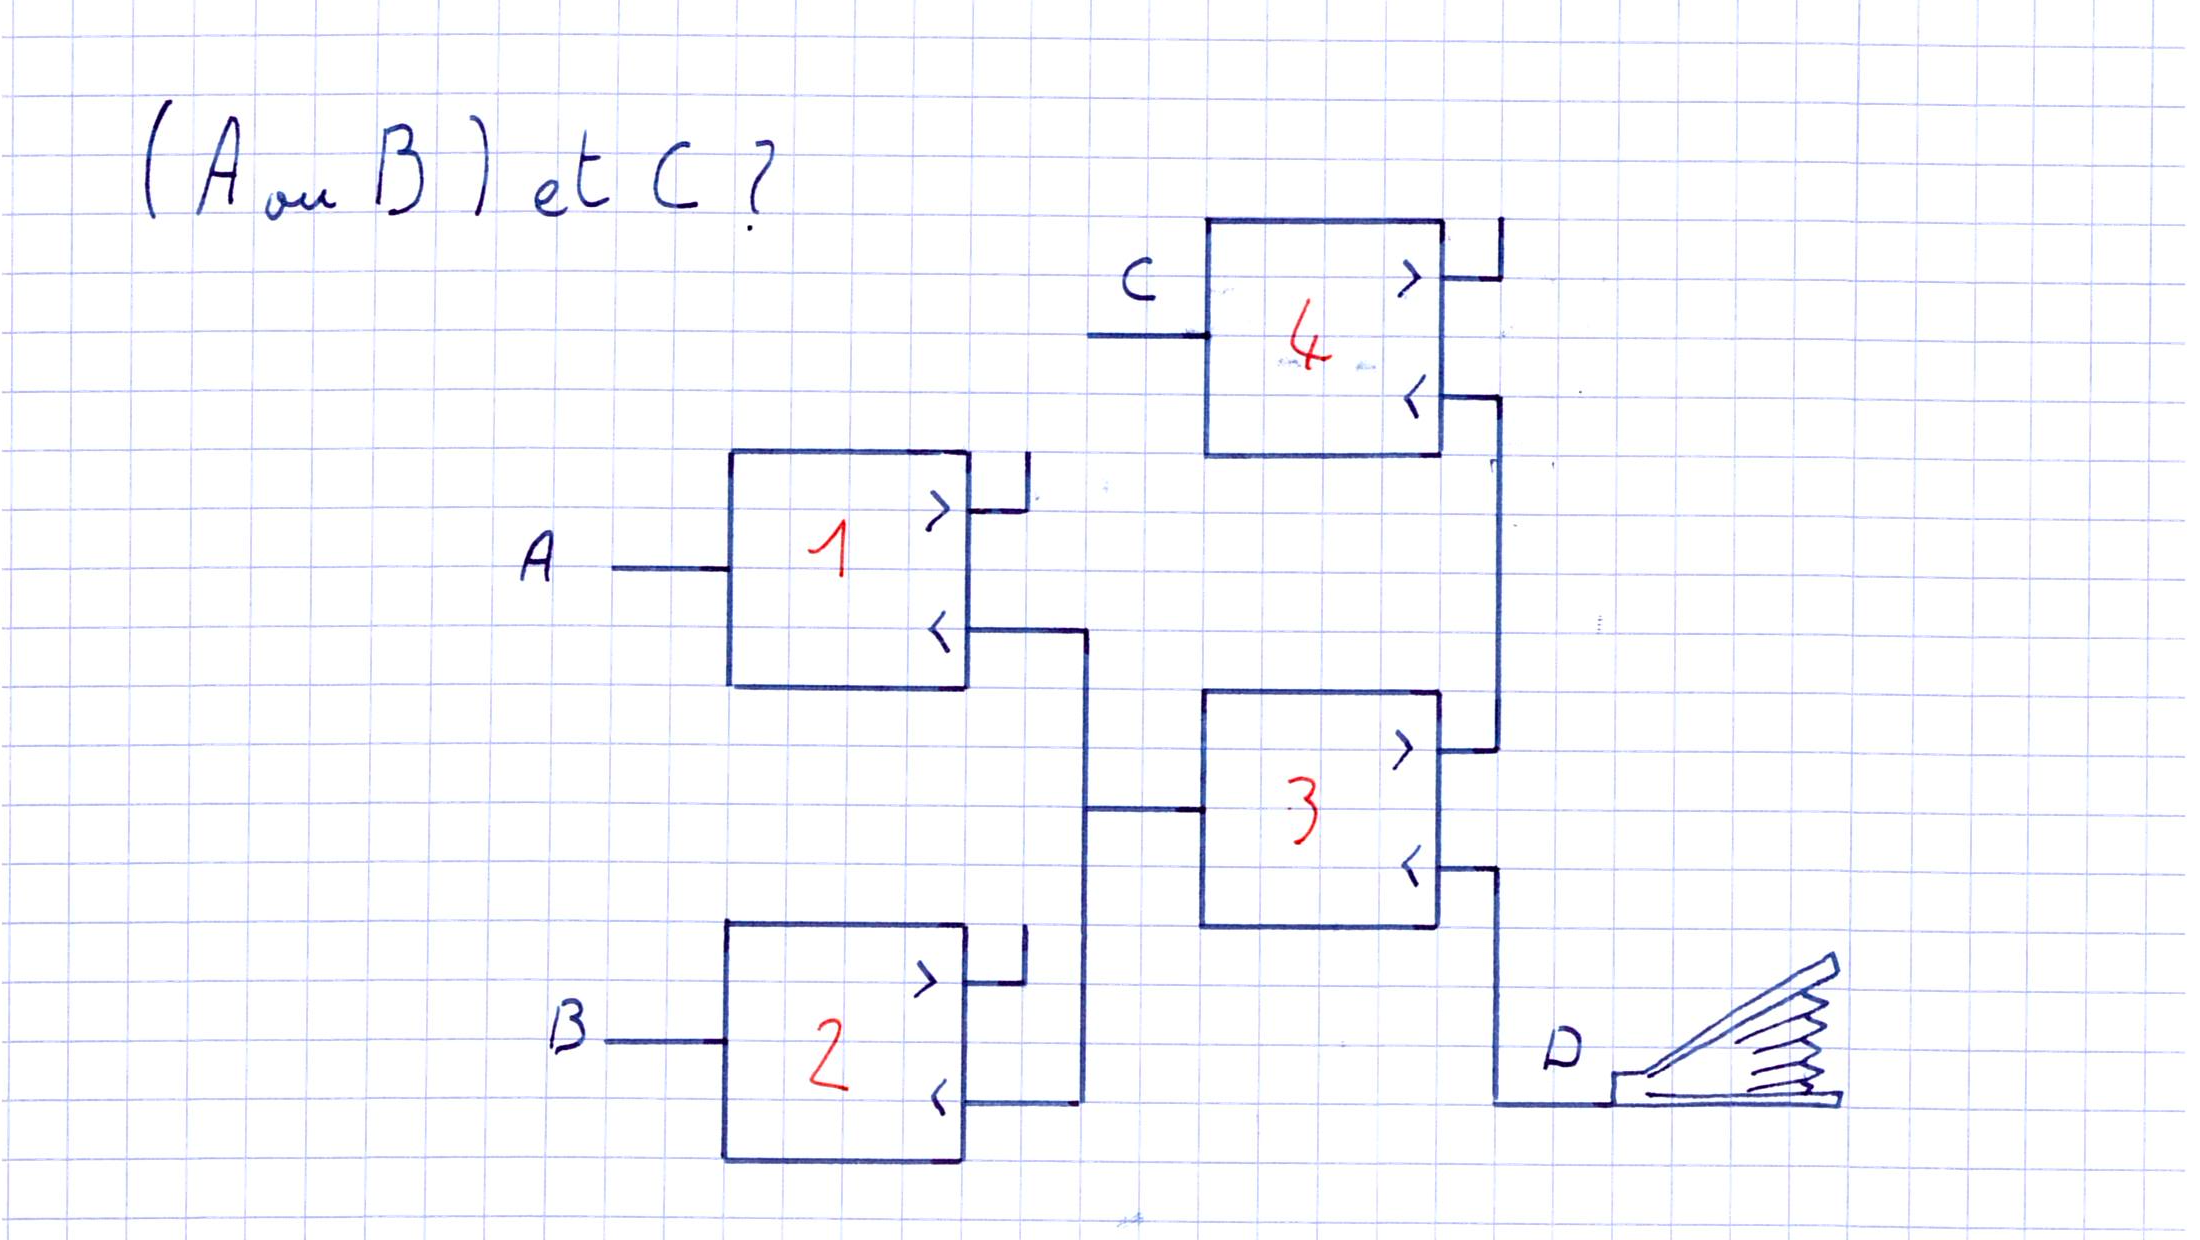 (A ou B) et C ?
C
>
4
<
>
A
1
<
>
3
<
>
B
2
<
D